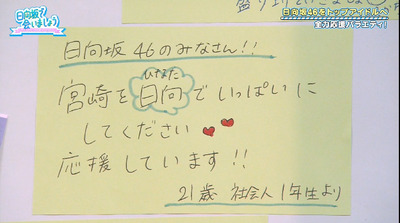 日向坂で会いましょう
日向坂46をトップアイドルへ
全力応援バラエティ!
日向坂46のみなさん!!
ひなた
宮崎を日向でいっぱいに
してください
応援しています!!
21歳 社会人1年生より